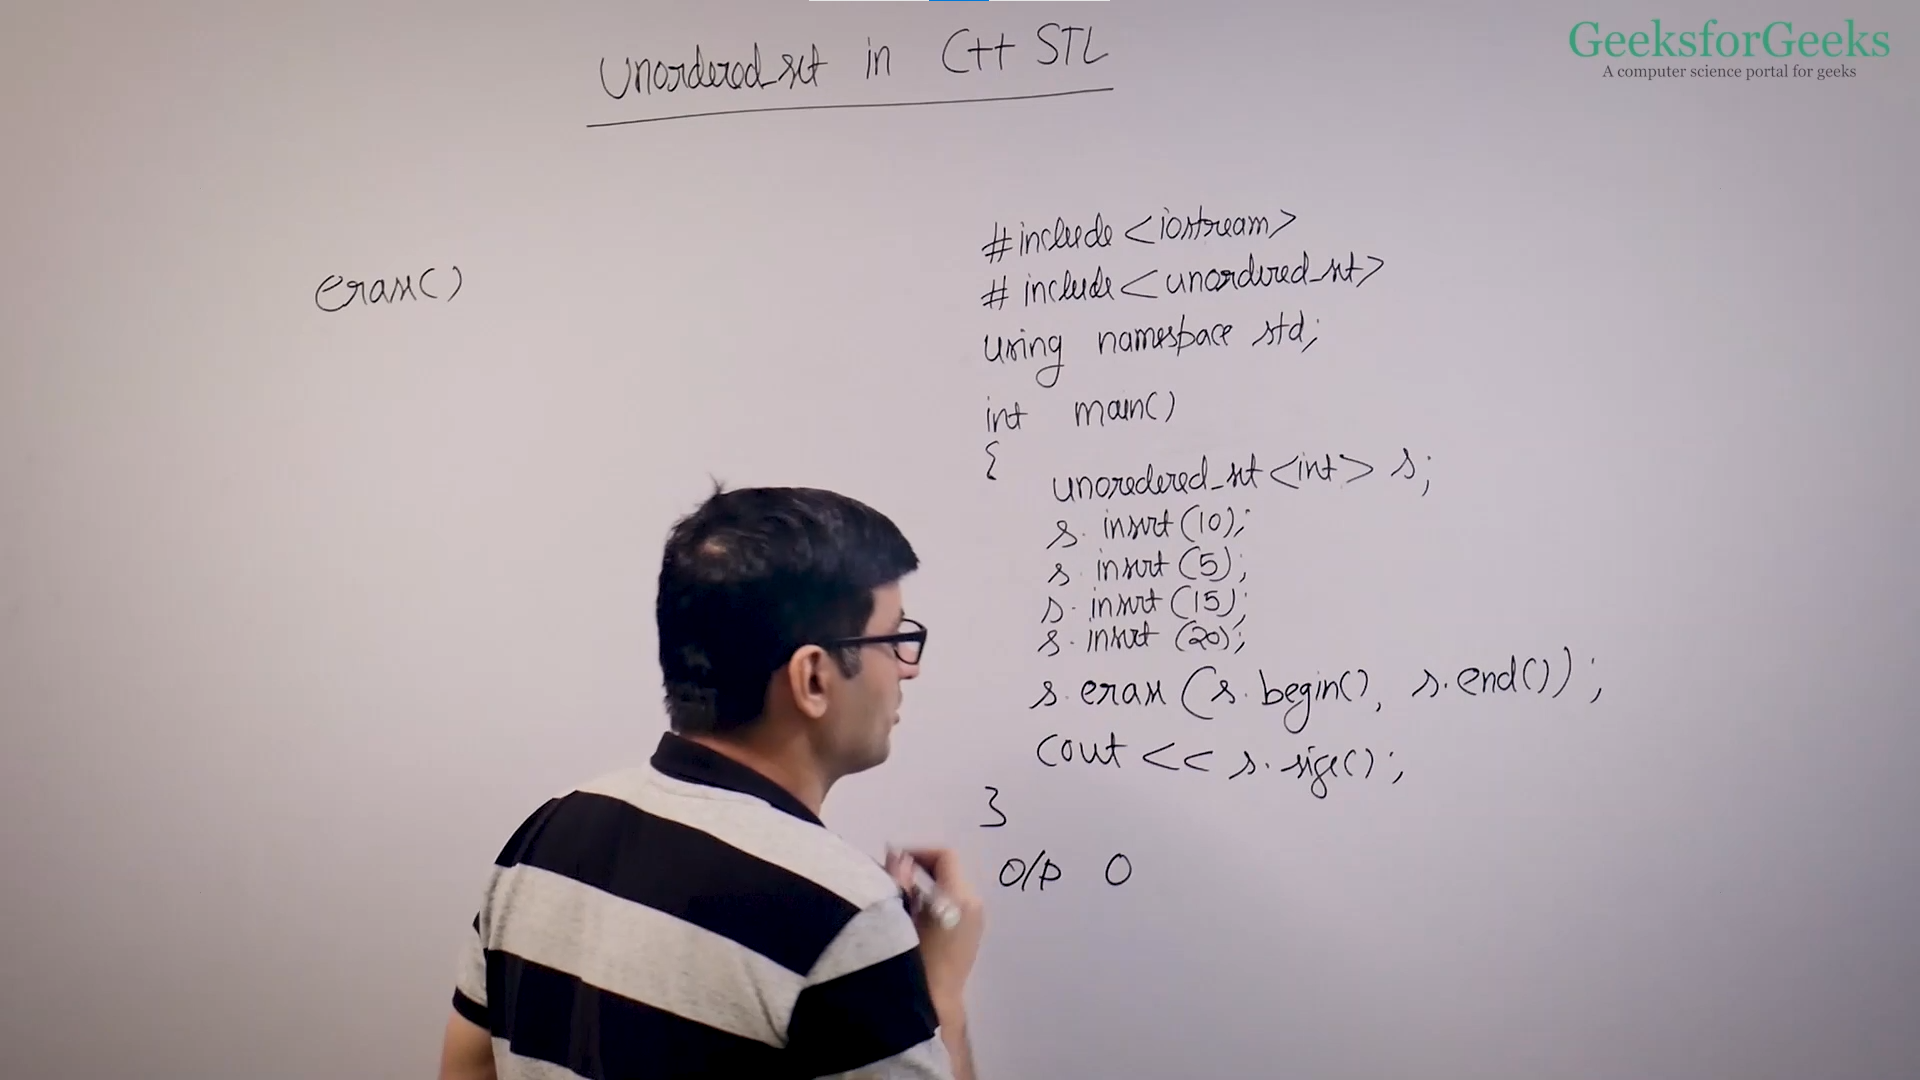 GeeksforGeeks
A computer science portal for geeks
Unordered_set in C++ STL
erase()
#include <iostream>
# include < unordered_set>
using namespace std;
int main()
{
unoredered_set <int> s;
s. insert (10);
s. insert (5);
s. insert (15);
s. insert (20);
s. erase (s. begin(), s. end());
cout << s. size();
}
O/P 0